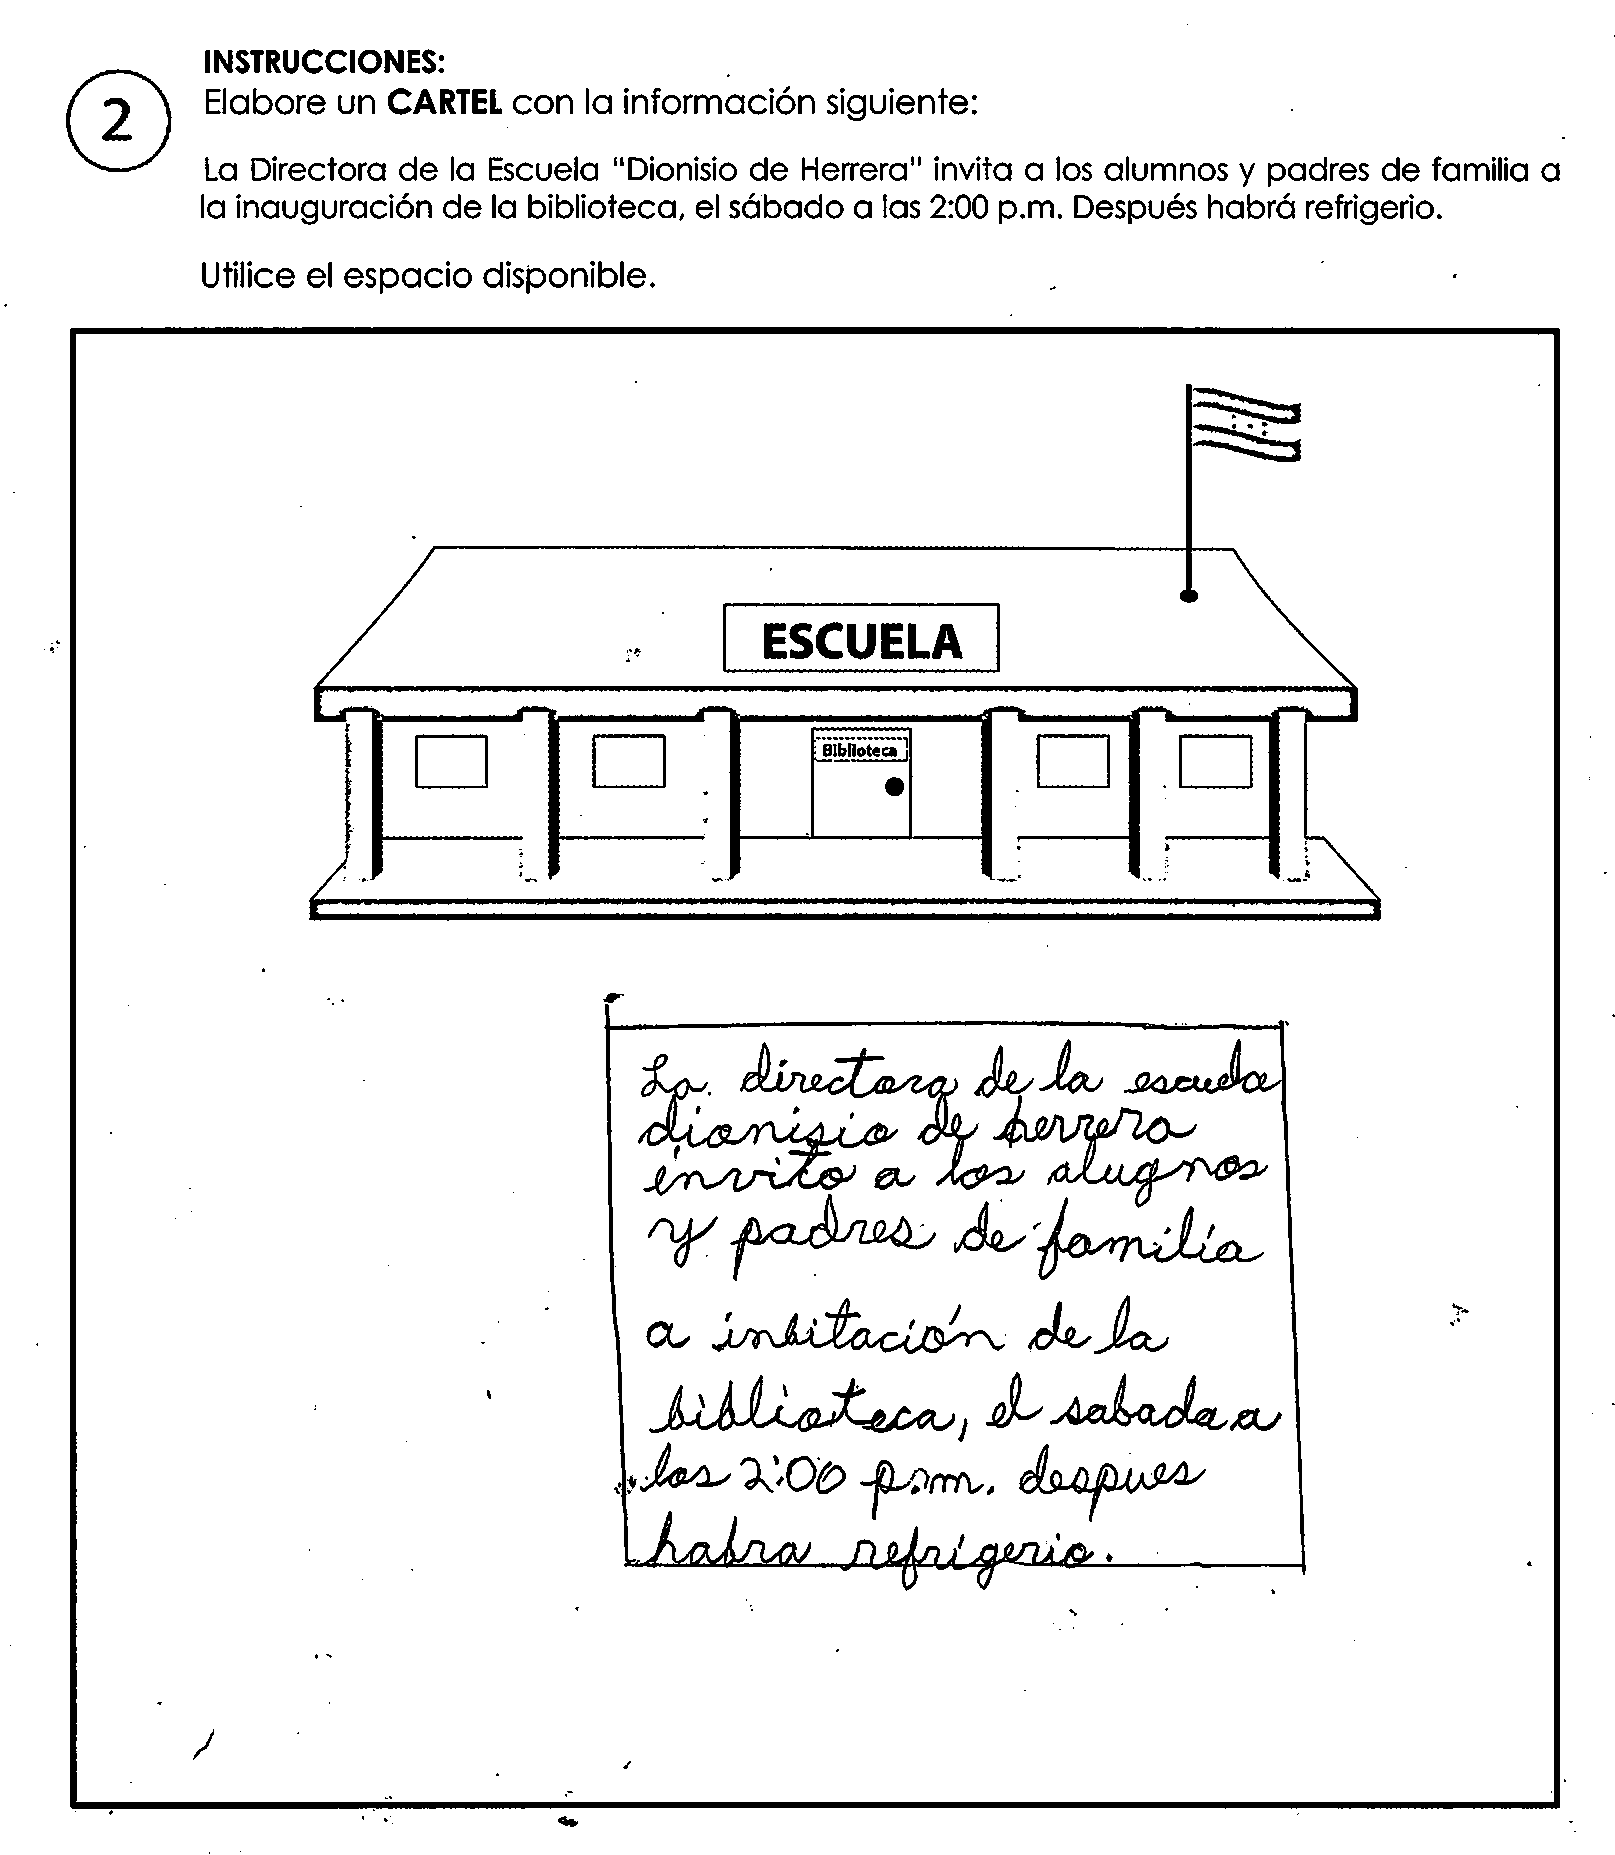 INSTRUCCIONES:
2
Elabore un CARTEL con la información siguiente:
La Directora de la Escuela "Dionisio de Herrera" invita a los alumnos y padres de familia a
la inauguración de la biblioteca, el sábado a las 2:00 p.m. Después habrá refrigerio.
Utilice el espacio disponible.
ESCUELA
Biblioteca
La directora de la escuela
dionisio de herrera
invito a los alugnos
y padres de familia
a inbitación de la
biblioteca, el sabada a
las 2:00 p.m. despues
habra refrigerio.